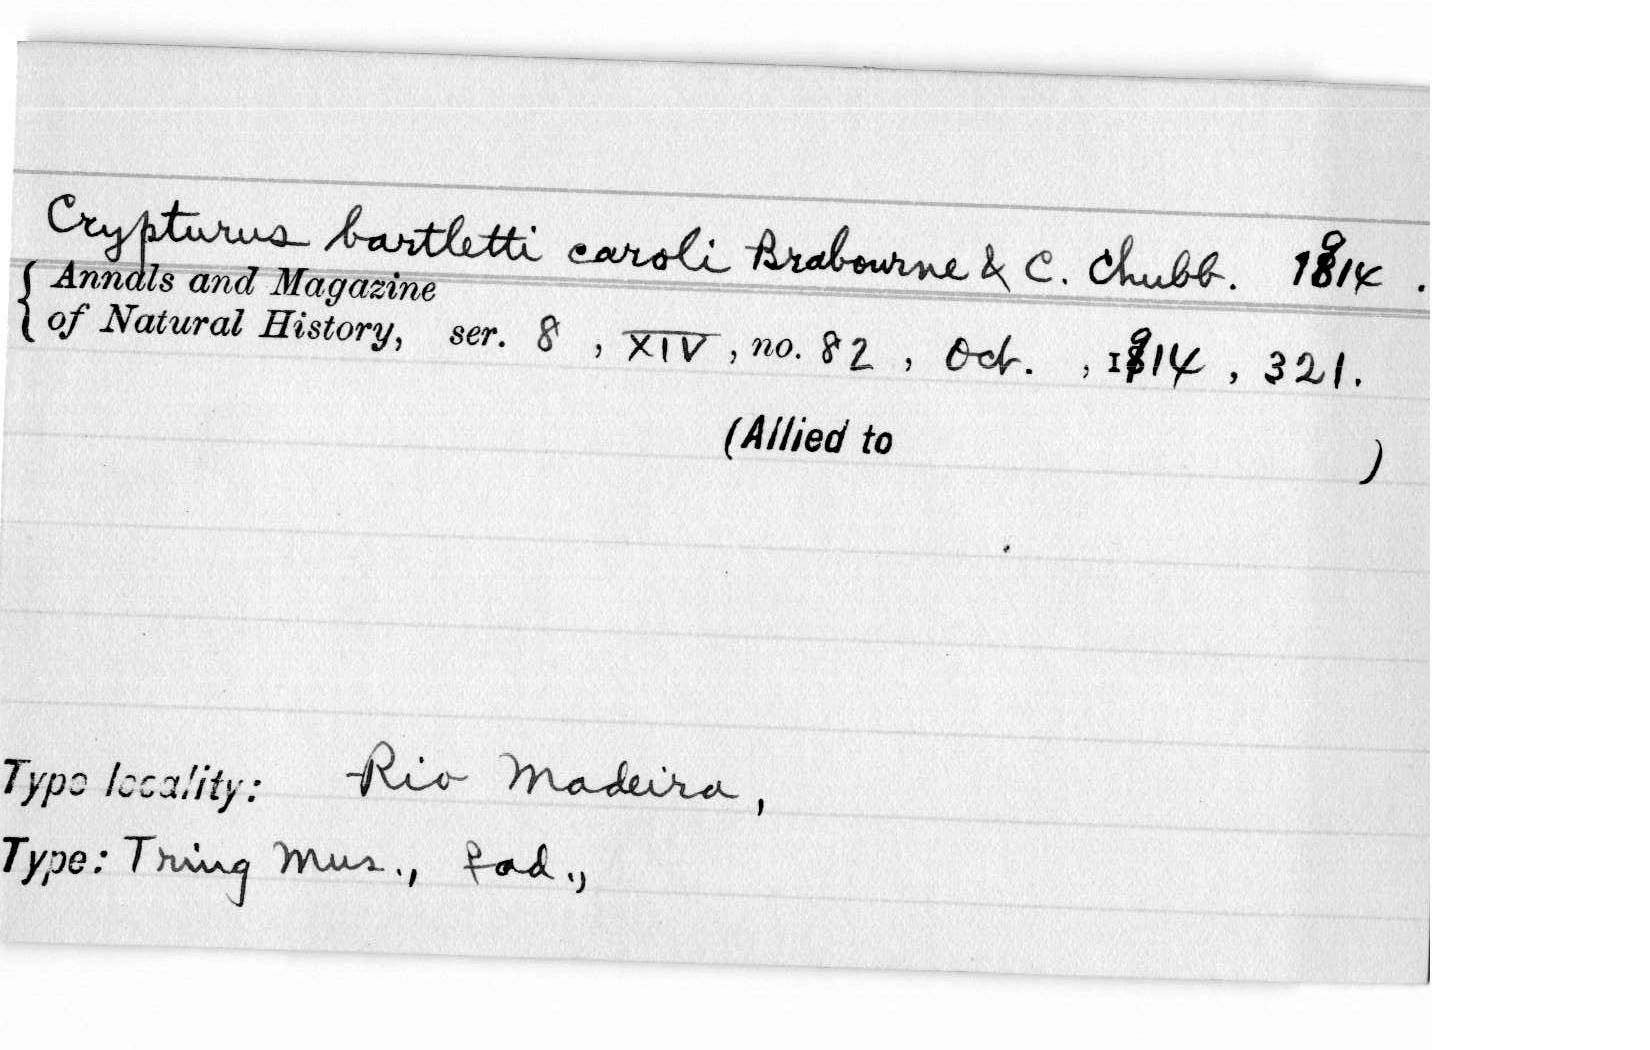 Crypturus bartletti caroli Brabourne & C. Chubb. 1914 .
Annals and Magazine
of Natural History, ser. 8 , XIV , no. 82 , Oct. , 1914 , 321.
(Allied to )
Type locality: Rio Madeira,
Type: Tring Mus., ♀ ad.,